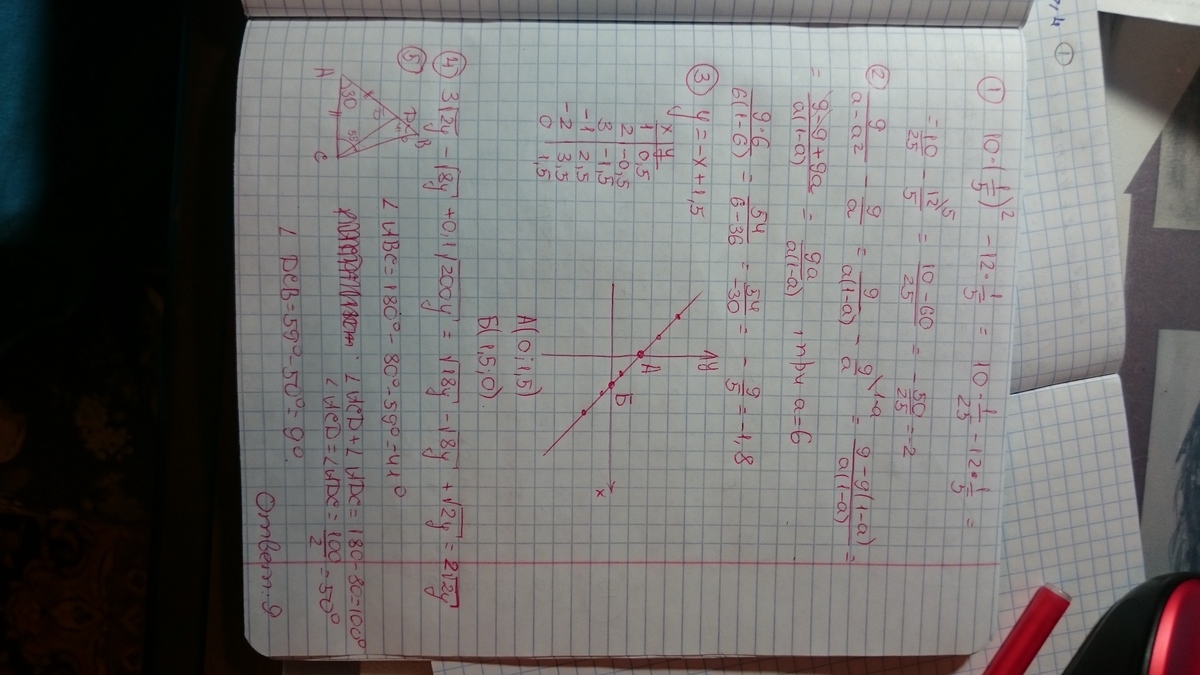 ① 10·(1/5)² - 12·1/5 = 10·1/25 - 12·1/5 =
= 10/25 - 12/5 \5 = 10-60/25 = -50/25 = -2
② 9/a-a² - 9/a = 9/a(1-a) - 9/a \1-a = 9-9(1-a)/a(1-a) =
= 9-9+9a/a(1-a) = 9a/a(1-a) , при a=6
9·6/6(1-6) = 54/6-36 = 54/-30 = -9/5 = -1,8
③ y = -x + 1,5
x y
1 0,5
2 -0,5
3 -1,5
-1 2,5
-2 3,5
0 1,5
y
A
Б
x
A(0;1,5)
Б(1,5;0)
④ 3√2y - √18y + 0,1√200y = √18y - √18y + √2y = 2√2y
⑤
A
B
C
D
∠ABC = 180° - 80° - 59° = 41°
∠ACD + ∠ADC = 180-80=100°
∠ACD = ∠ADC = 100/2 = 50°
∠DCB = 59° - 50° = 9°
Ответ: 9